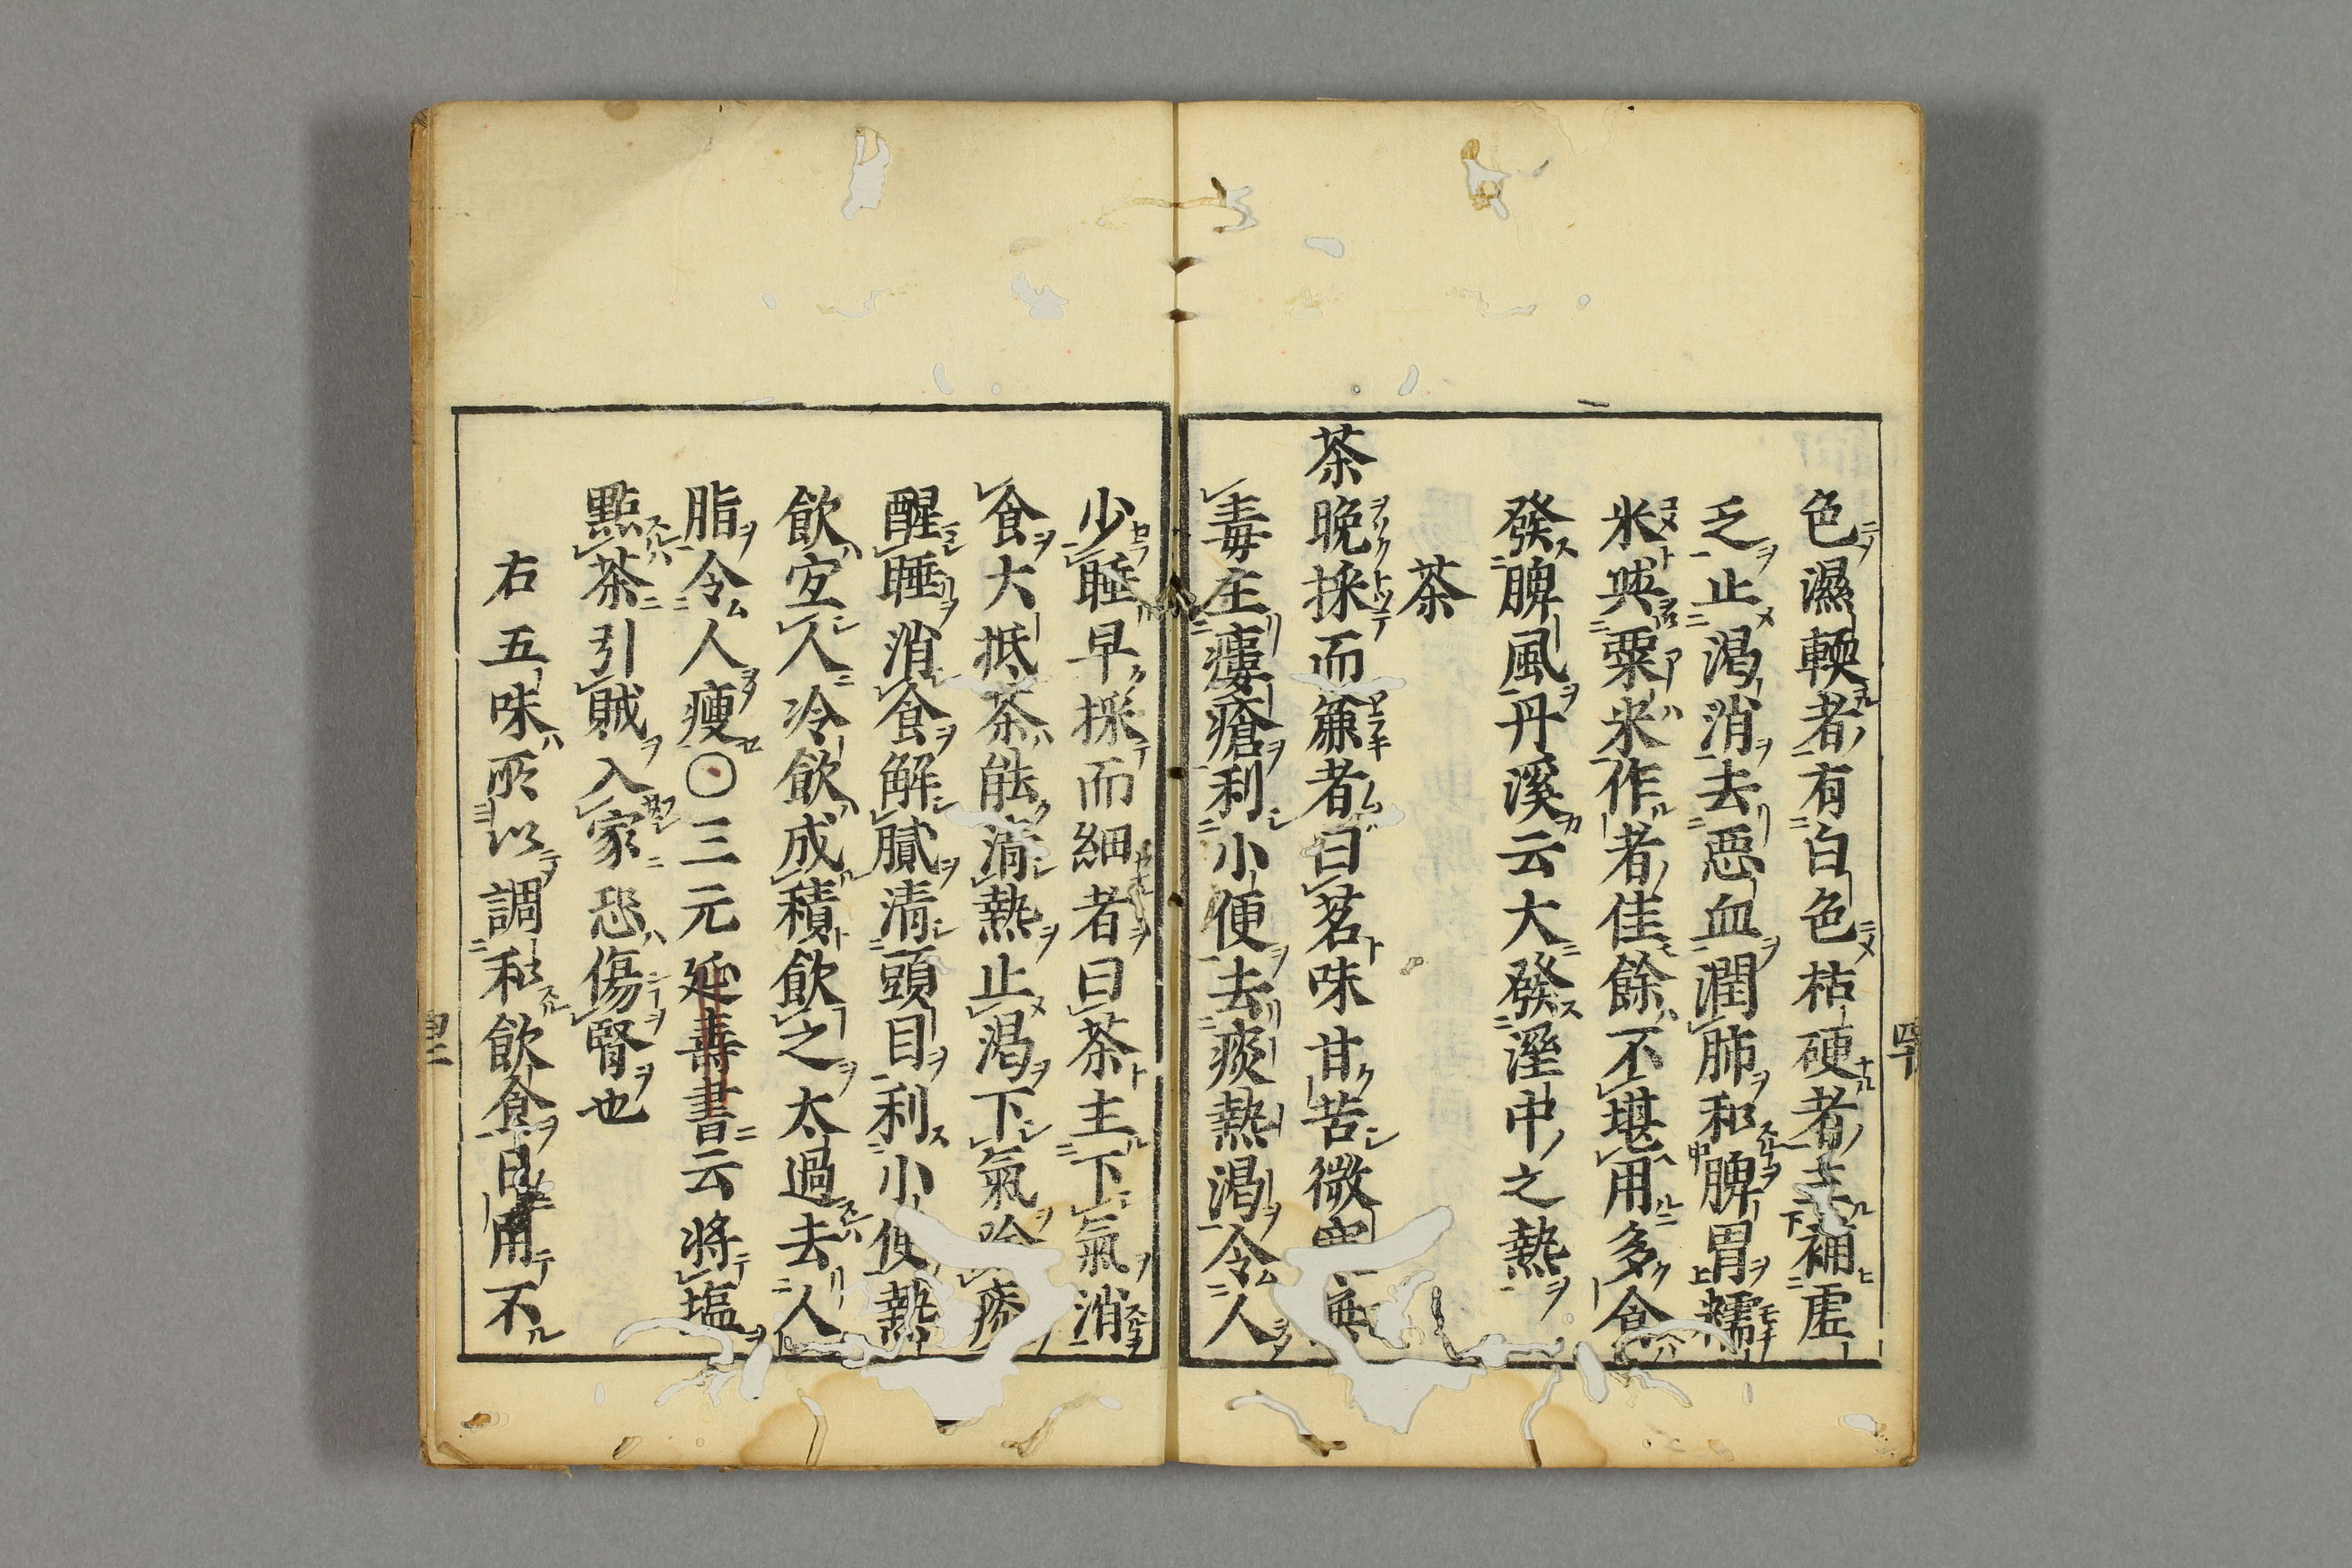 色濕輭者有白色枯硬者主補虛
乏止渴消去惡血潤肺和脾胃糯
米與粟米作者佳餘不堪用多食
發脾風丹溪云大發溼中之熱
茶
茶晚採而麁者曰茗味甘苦微無
毒主瘻瘡利小便去痰熱渴令人
少睡早採而細者曰茶主下氣消
食大抵茶能淸熱止渴下氣除痰
醒睡消食解膩清頭目利小便熱
飲宜人冷飲成積飲之太過去人
脂令人瘦〇三元延壽書云將塩
點茶引賊入家恐傷腎也
右五味所以調和飲食日用不